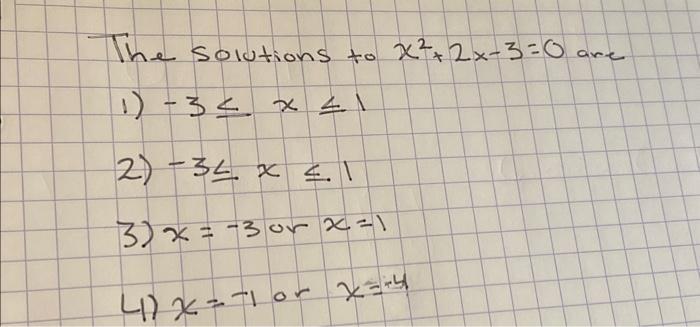 The solutions to x²+2x-3=0 are
1) -3 ≤ x ≤ 1
2) -3 ≤ x ≤ 1
3) x = -3 or x = 1
4) x = -1 or x = -4